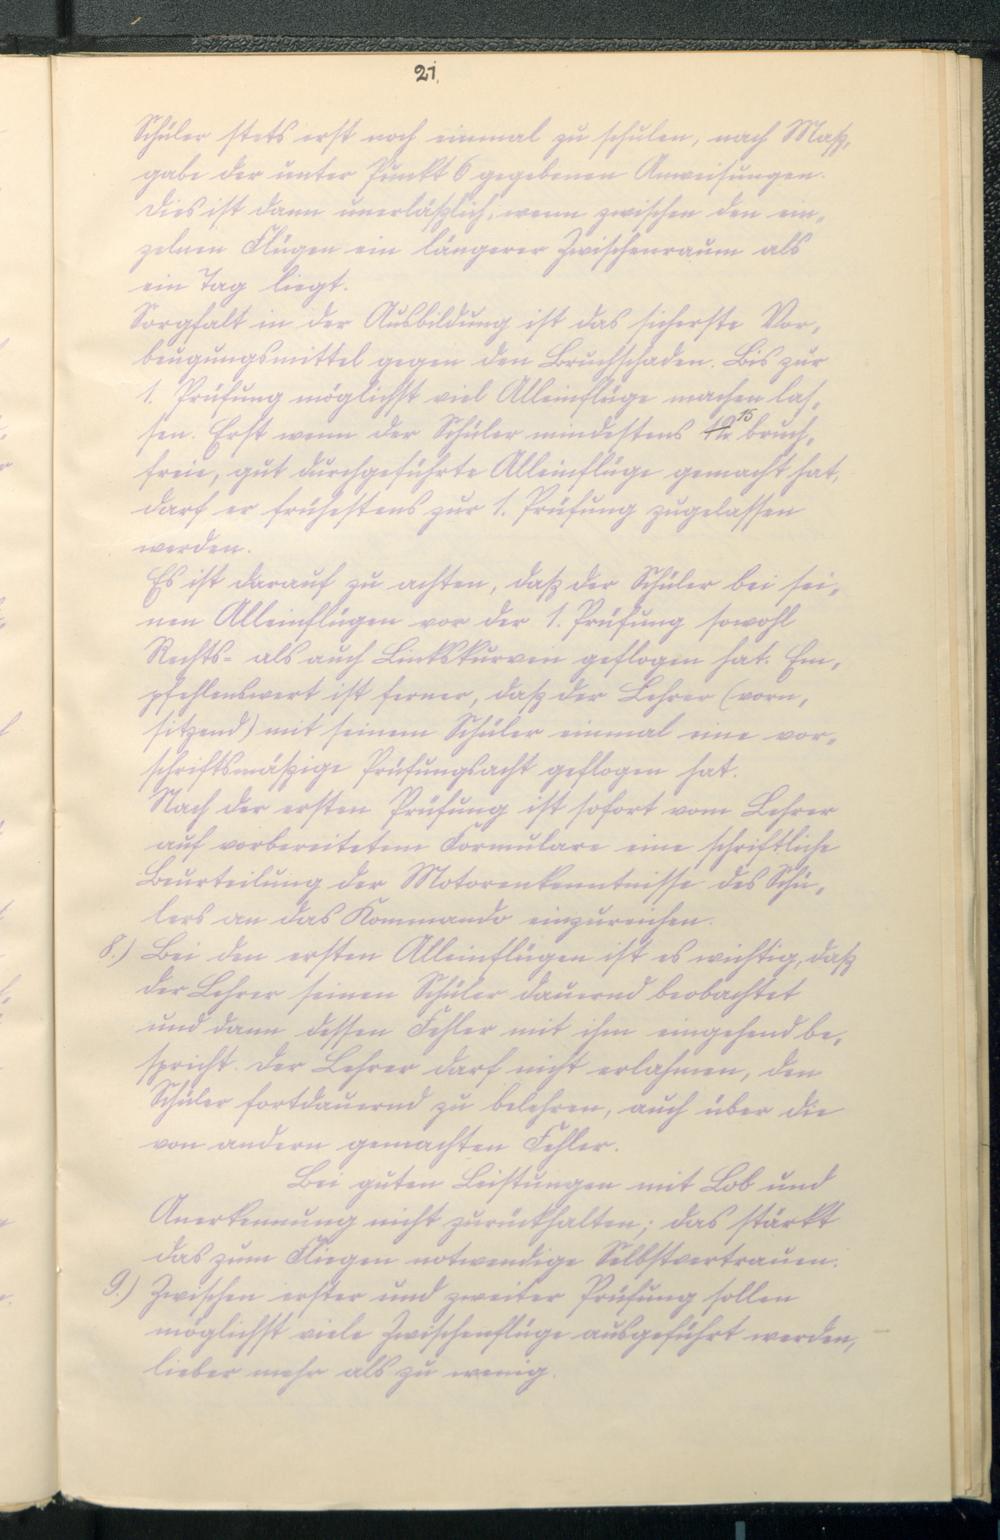 21.
Schüler stets erst noch einmal zu schulen, nach Maß-
gabe der unter Punkt 6 gegebenen Anweisungen.
Dies ist dann unerläßlich, wenn zwischen den ein-
zelnen Flügen ein längerer Zwischenraum als
ein Tag liegt.
Sorgfalt in der Ausbildung ist das sicherste Vor-
beugungsmittel gegen den Bruchschaden. Bis zur
1. Prüfung möglichst viel Alleinflüge machen las-
sen. Erst wenn der Schüler mindestens 15 bruch-
freie, gut durchgeführte Alleinflüge gemacht hat,
darf er frühestens zur 1. Prüfung zugelassen
werden.
Es ist darauf zu achten, daß der Schüler bei sei-
nen Alleinflügen vor der 1. Prüfung sowohl
Rechts- als auch Linkskurven geflogen hat. Em-
pfehlenswert ist ferner, daß der Lehrer (vorn-
sitzend) mit seinem Schüler einmal eine vor-
schriftsmäßige Prüfungsacht geflogen hat.
Nach der ersten Prüfung ist sofort vom Lehrer
auf vorbereitetem Formulare eine schriftliche
Beurteilung der Motorenkenntnisse des Schü-
lers an das Kommando einzureichen.
8.) Bei den ersten Alleinflügen ist es wichtig, daß
der Lehrer seinen Schüler dauernd beobachtet
und dann dessen Fehler mit ihm eingehend be-
spricht. Der Lehrer darf nicht erlahmen, den
Schüler fortdauernd zu belehren, auch über die
von andern gemachten Fehler.
Bei guten Leistungen mit Lob und
Anerkennung nicht zurückhalten; das stärkt
das zum Fliegen notwendige Selbstvertrauen.
9.) Zwischen erster und zweiter Prüfung sollen
möglichst viele Zwischenflüge ausgeführt werden,
lieber mehr als zu wenig.